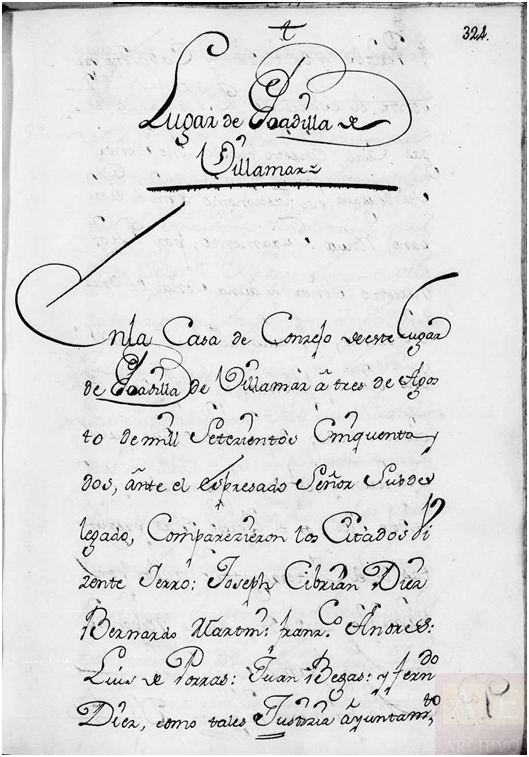 324.
Lugar de Boadilla de
Villamar
En la Casa de Conzejo de este Lugar
de Boadilla de Villamar â tres de Agos
to de mill Setezientos Cinquenta y
dos, ânte el espresado Señor Subde
legado, Comparezieron los Citados Vi
zente Ferro: Joseph Cibrian Diez
Bernardo Martin: Franz.co Andres:
Luis de Porras: Juan Begas: y Fern.do
Diez, como tales Justizia âyuntam.to,
ARCHIVO